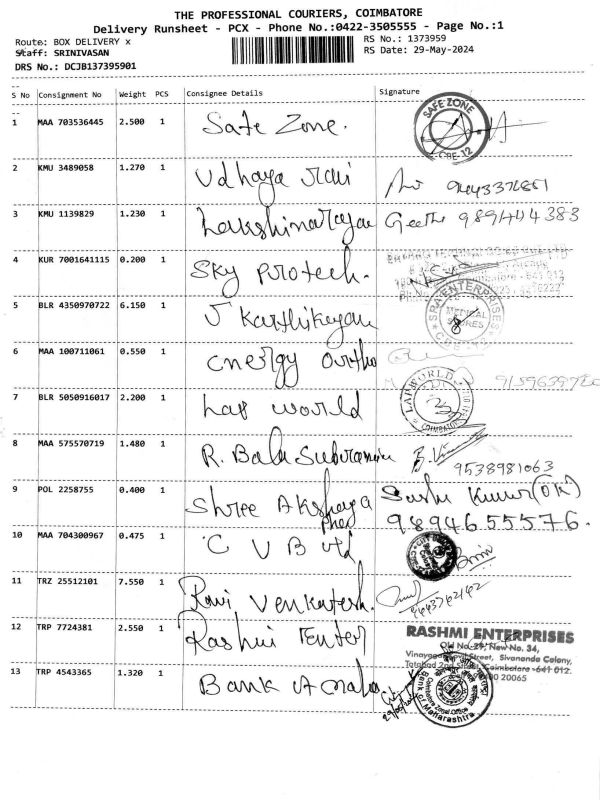 THE PROFESSIONAL COURIERS, COIMBATORE
Delivery Runsheet - PCX - Phone No.:0422-3505555 - Page No.:1
Route: BOX DELIVERY x RS No.: 1373959
Staff: SRINIVASAN RS Date: 29-May-2024
DRS No.: DCJB137395901
S No Consignment No Weight PCS Consignee Details Signature
1 MAA 703536445 2.500 1 Safe Zone. SAFE ZONE CBE-12
2 KMU 3489058 1.270 1 Udhaya rani
3 KMU 1139829 1.230 1 Lakshinarayan Geetha 989444383
4 KUR 7001641115 0.200 1 Sky protech.
5 BLR 4350970722 6.150 1 J Karthikeyan SRA ENTERPRISES MEDICAL STORES CBE-12
6 MAA 100711061 0.550 1 energy ortho
7 BLR 5050916017 2.200 1 Lap world LAP WORLD COIMBATORE
8 MAA 575570719 1.480 1 R. Bala Subramani 9538981063
9 POL 2258755 0.400 1 Shree Akshaya Sashi Kumar (OK)
9894655576.
10 MAA 704300967 0.475 1 C U B Ltd
11 TRZ 25512101 7.550 1 Ravi Venkatesh.
12 TRP 7724381 2.550 1 Rashmi Enter RASHMI ENTERPRISES
Old No. 29, New No. 34,
Street, Sivananda Colony,
Tatabad 2nd Coimbatore -641 012.
20065
13 TRP 4543365 1.320 1 Bank of maha Bank of Maharashtra